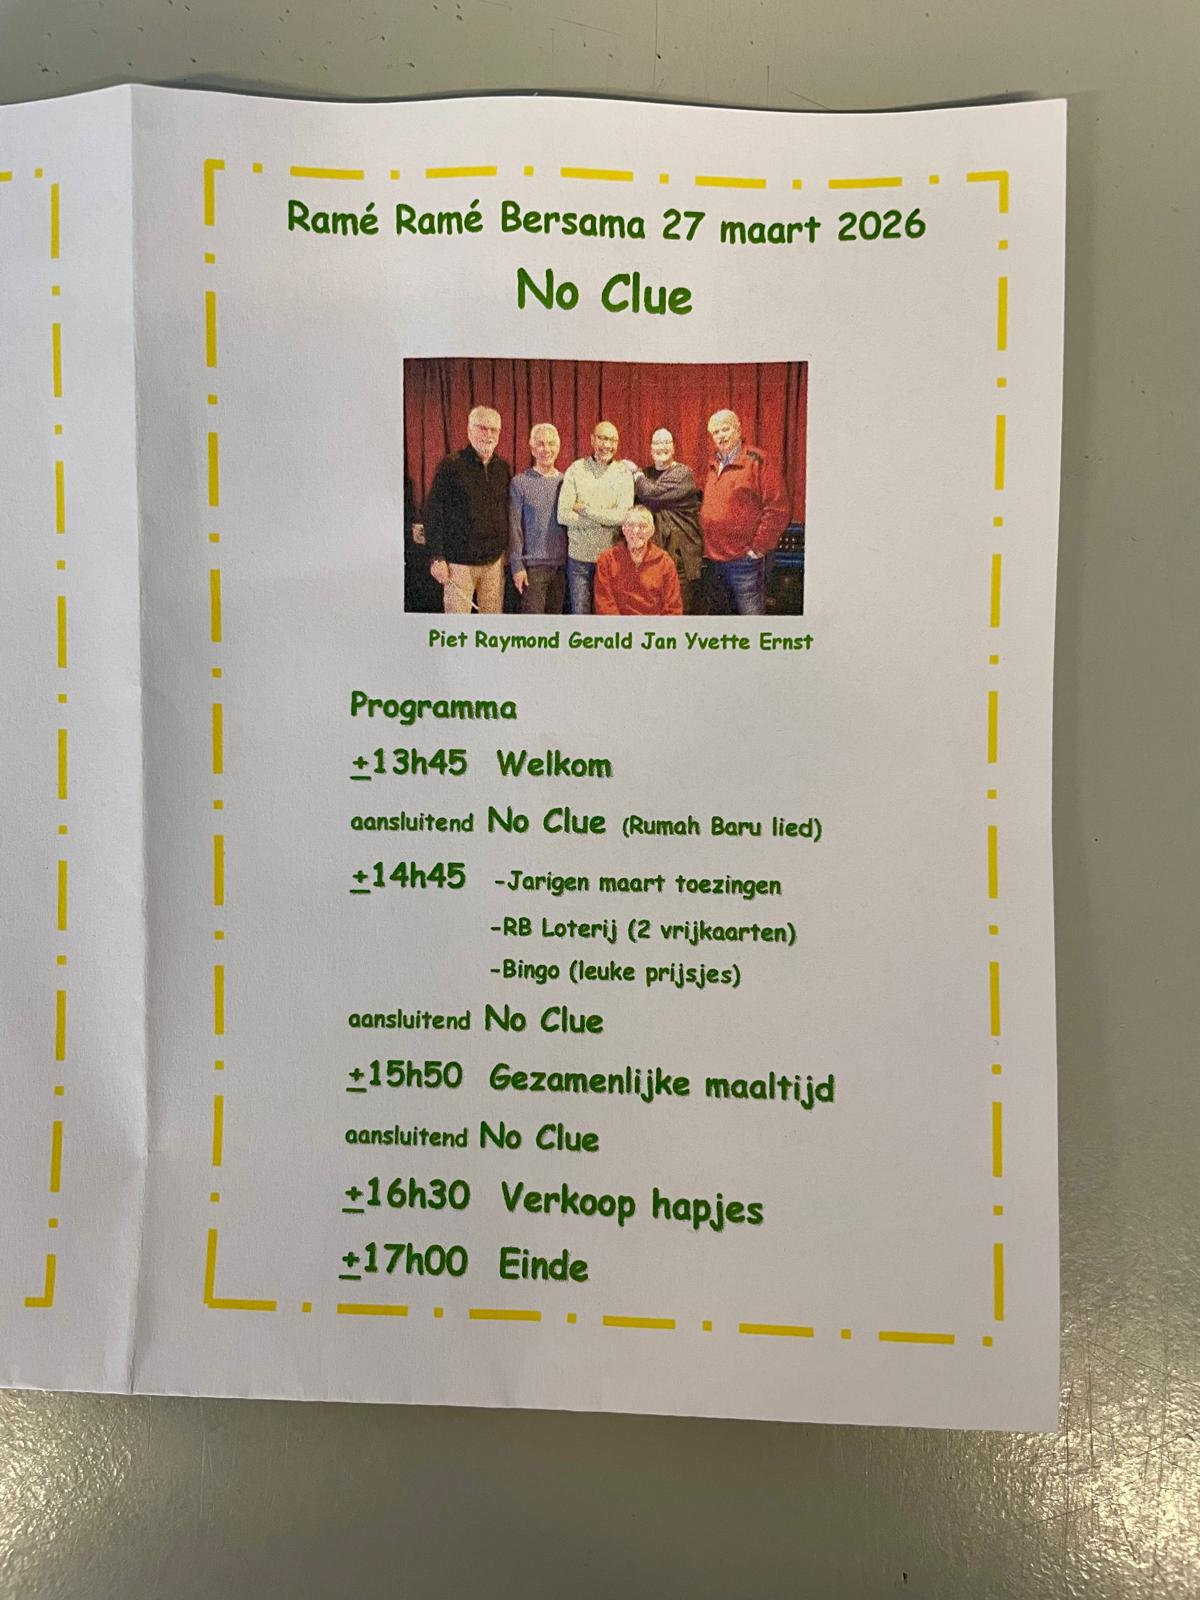 Ramé Ramé Bersama 27 maart 2026
No Clue
Piet Raymond Gerald Jan Yvette Ernst
Programma
±13h45 Welkom
aansluitend No Clue (Rumah Baru lied)
±14h45 -Jarigen maart toezingen
-RB Loterij (2 vrijkaarten)
-Bingo (leuke prijsjes)
aansluitend No Clue
±15h50 Gezamenlijke maaltijd
aansluitend No Clue
±16h30 Verkoop hapjes
±17h00 Einde